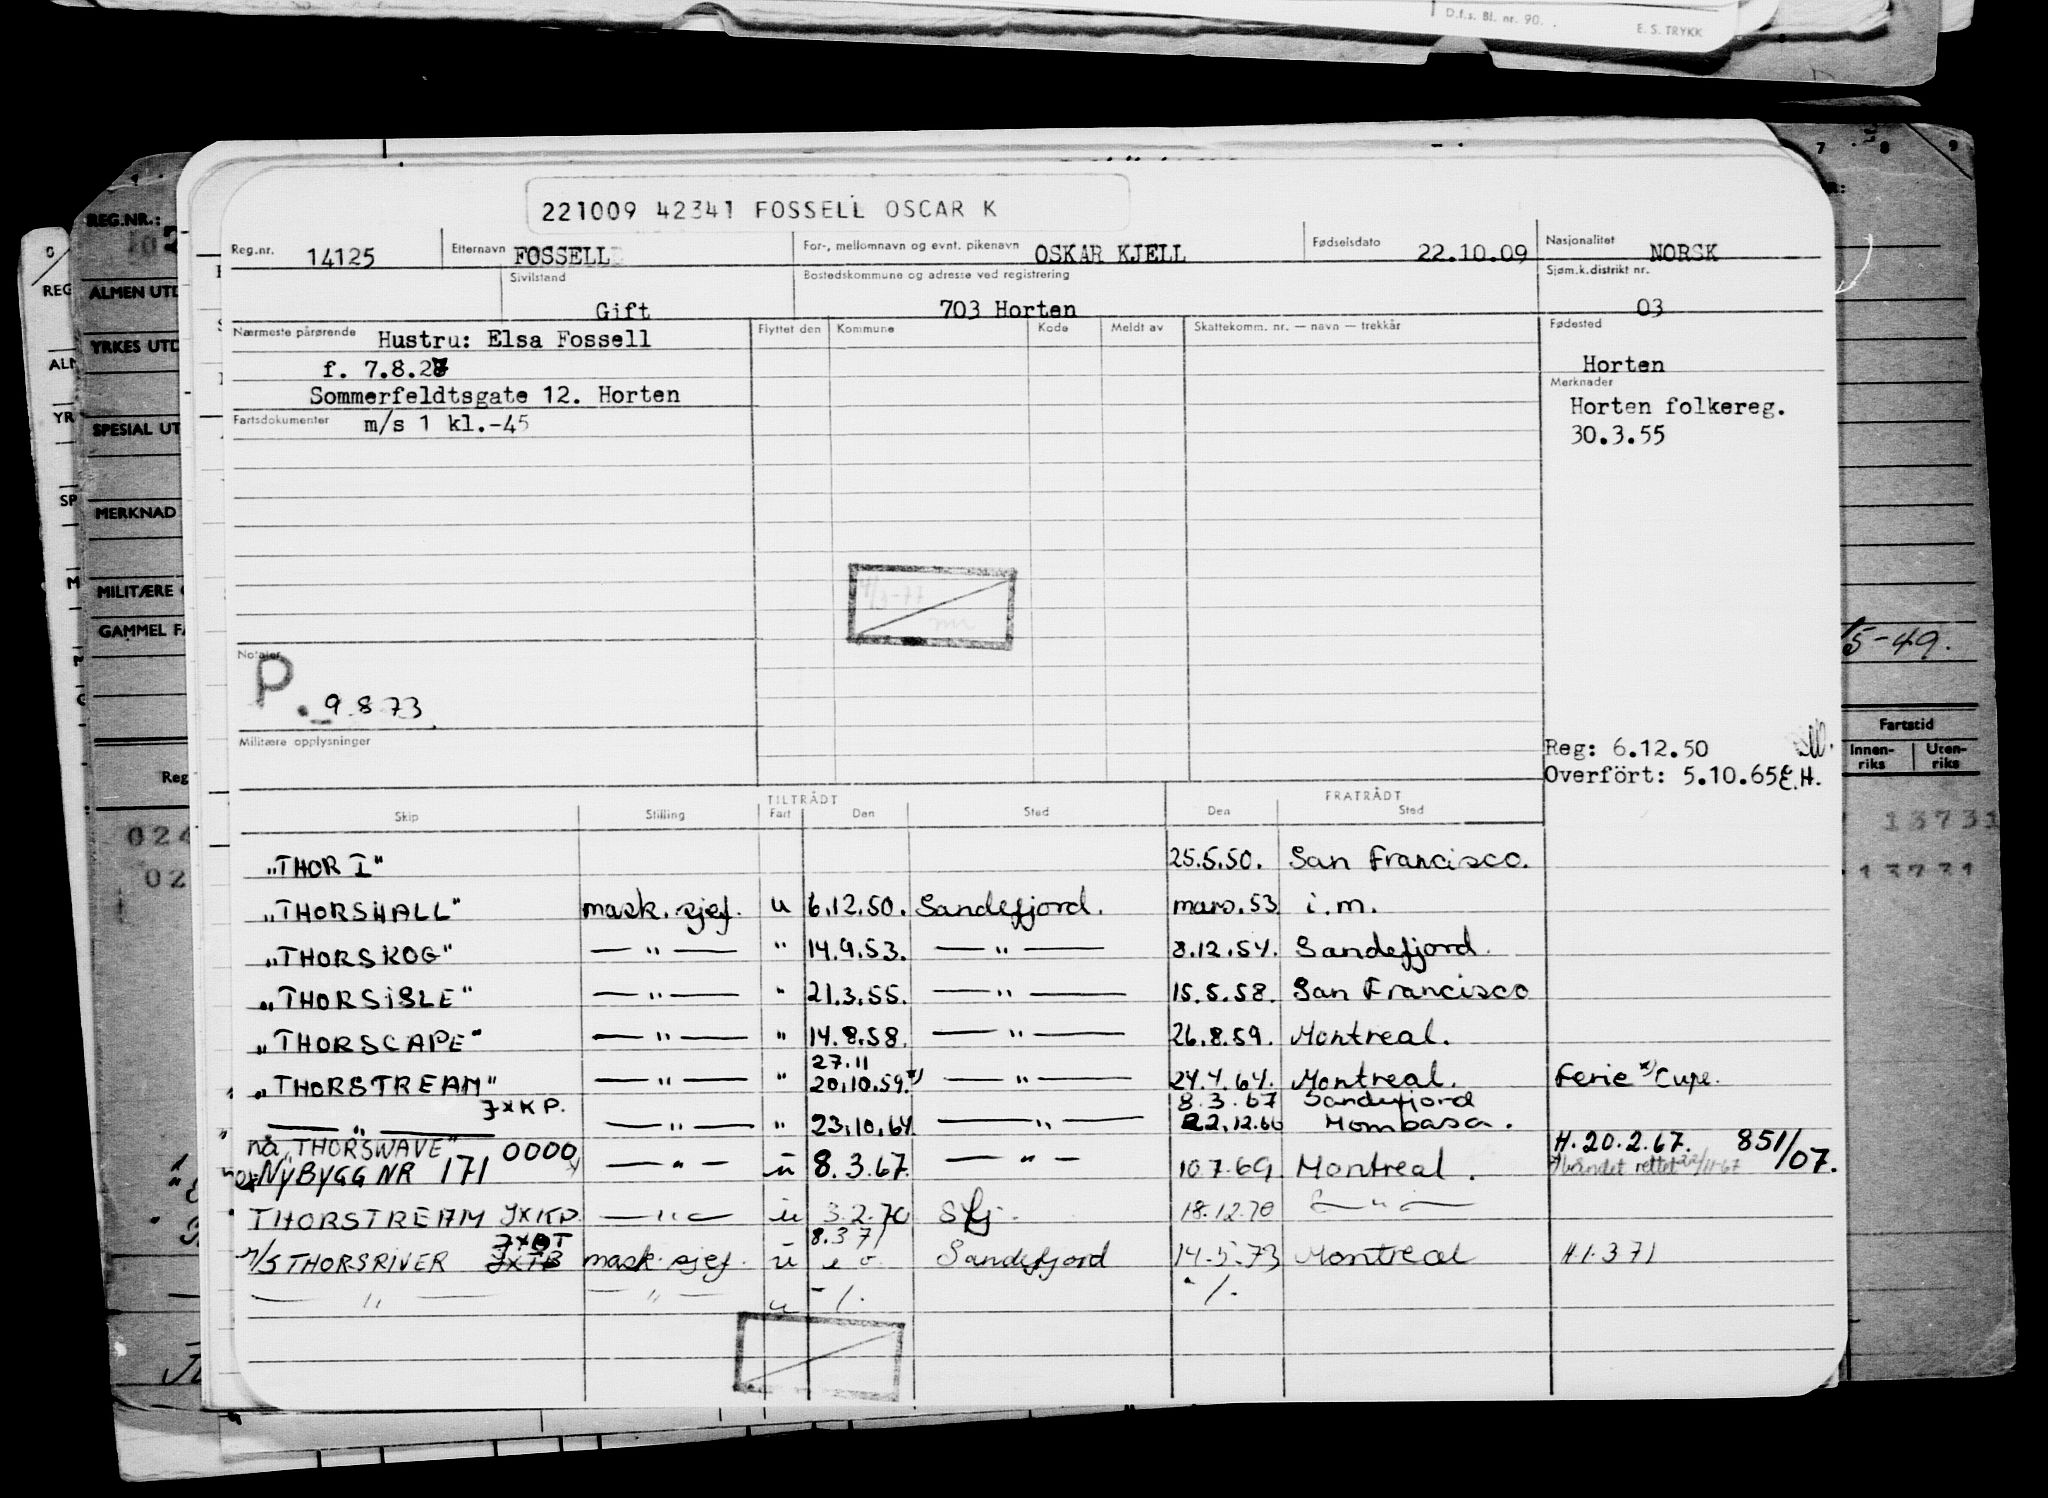 D.f.s. Bl. nr. 90.
E. S. TRYKK
7 8 9
REG.NR.:
221009 42341 FOSSELL OSCAR K
Reg.nr. 14125 Etternavn FOSSELL For-, mellomnavn og evnt. pikenavn OSKAR KJELL Fødselsdato 22.10.09 Nasjonalitet NORSK
Sivilstand Gift Bostedskommune og adresse ved registrering 703 Horten Sjøm.k.distrikt nr. 03
Nærmeste pårørende Hustru: Elsa Fossell Flyttet den Kommune Kode Meldt av Skattekomm. nr. — navn — trekkår Fødested
f. 7.8.28 Horten
Sommerfeldtsgate 12. Horten Merknader
Fartsdokumenter m/s 1 kl.-45 Horten folkereg.
30.3.55
REG
ALMEN UTD
YRKES UTD
SPESIAL UT
MERKNAD
MILITÆRE
GAMMEL FA
5-49.
Notater
P. 9.8.73.
Militære opplysninger
Reg: 6.12.50
Overfört: 5.10.65 E.H.
Fartstid
Innen-riks Uten-riks
Reg
TILTRÅDT FRATRÅDT
Skip Stilling Fart Den Sted Den Sted
024 13731
02 13731
„THOR I" 25.5.50. San Francisco.
„THORSHALL" mask.sjef. u 6.12.50. Sandefjord. mars.53 i.m.
„THORSKOG" — " — " 14.9.53. — " — 8.12.54. Sandefjord.
„THORSISLE" — " — " 21.3.55. — " — 15.5.58. San Francisco
„THORSCAPE" — " — " 14.8.58. — " — 26.8.59. Montreal.
27.11
„THORSTREAM" — " — " 20.10.59.*) — " — 24.4.64. Montreal. Ferie *) Cupe.
JXKP. 8.3.67 Sandefjord
— " — — " — " 23.10.64. — " — 22.12.66 Mombasa.
nå „THORSWAVE" 0000 H. 20.2.67. 851/07.
NYBYGG NR 171 — " — u 8.3.67. — " — 10.7.69. Montreal.
THORSTREAM JXKP. — " — u 3.2.70 Sfj. 18.12.70 — " —
8.3.71
m/s THORSRIVER mask.sjef. u Sandefjord 14.5.73 Montreal H.1.371
— " — — " — u -/. -/.